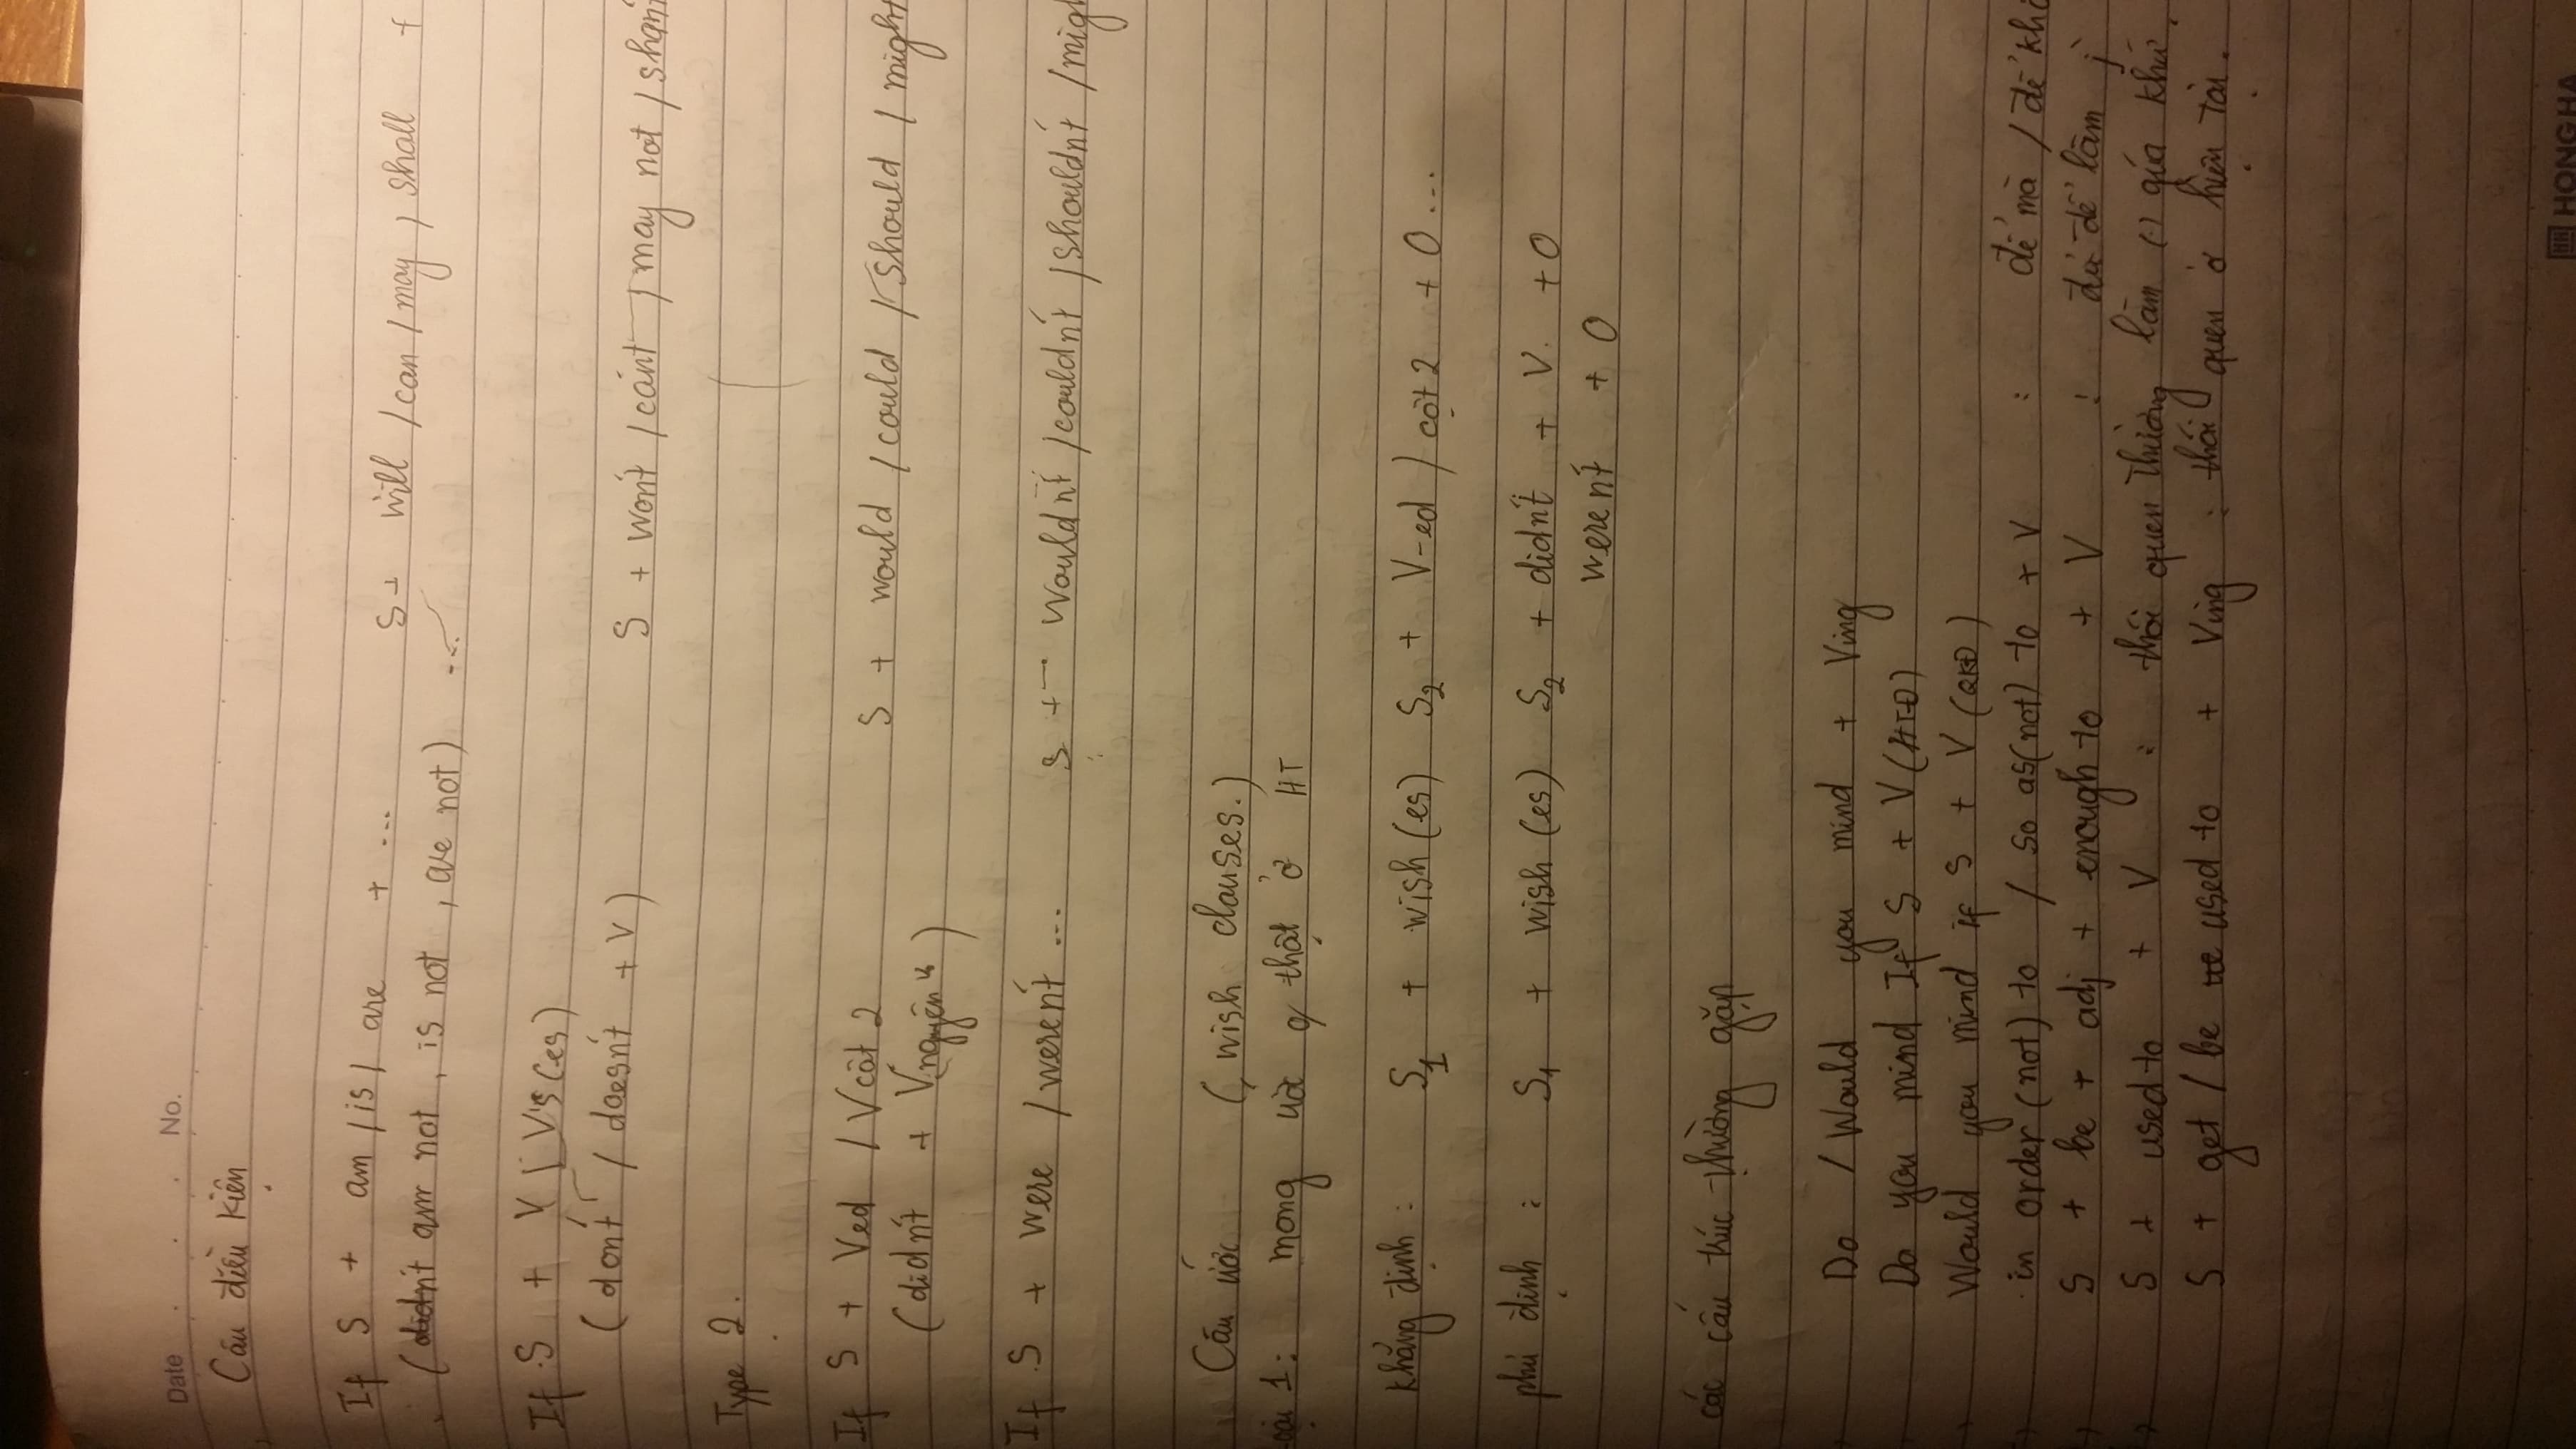 Date No.
Câu điều kiện
If S + am / is / are + ... S + will / can / may / shall +
(didn't am not, is not, are not) ...
If S + V / Vs(es)
(don't / doesn't + V) S + won't / can't / may not / shan't
Type 2.
If S + Ved / Vcột 2 S + would / could / should / might
(didn't + Vnguyên)
If S + were / weren't ... S + wouldn't / couldn't / shouldn't / migh
Câu ước (wish clauses.)
oại 1: mong ước ko thật ở HT
khẳng định: S1 + wish (es) S2 + V-ed / cột 2 + O...
phủ định: S1 + wish (es) S2 + didn't + V. + O
weren't + O
các cấu thúc thường gặp
Do / Would you mind + Ving
Do you mind If S + V (HTĐ)
Would you mind if S + V (QKĐ)
in order (not) to / so as (not) to + V : để mà / để khô
S + be + adj + enough to + V : đủ để làm j
S + used to + V : thói quen thường làm (-) qúa khứ
S + get / be used to + Ving : thói quen ở hiện tại.
HONGHA